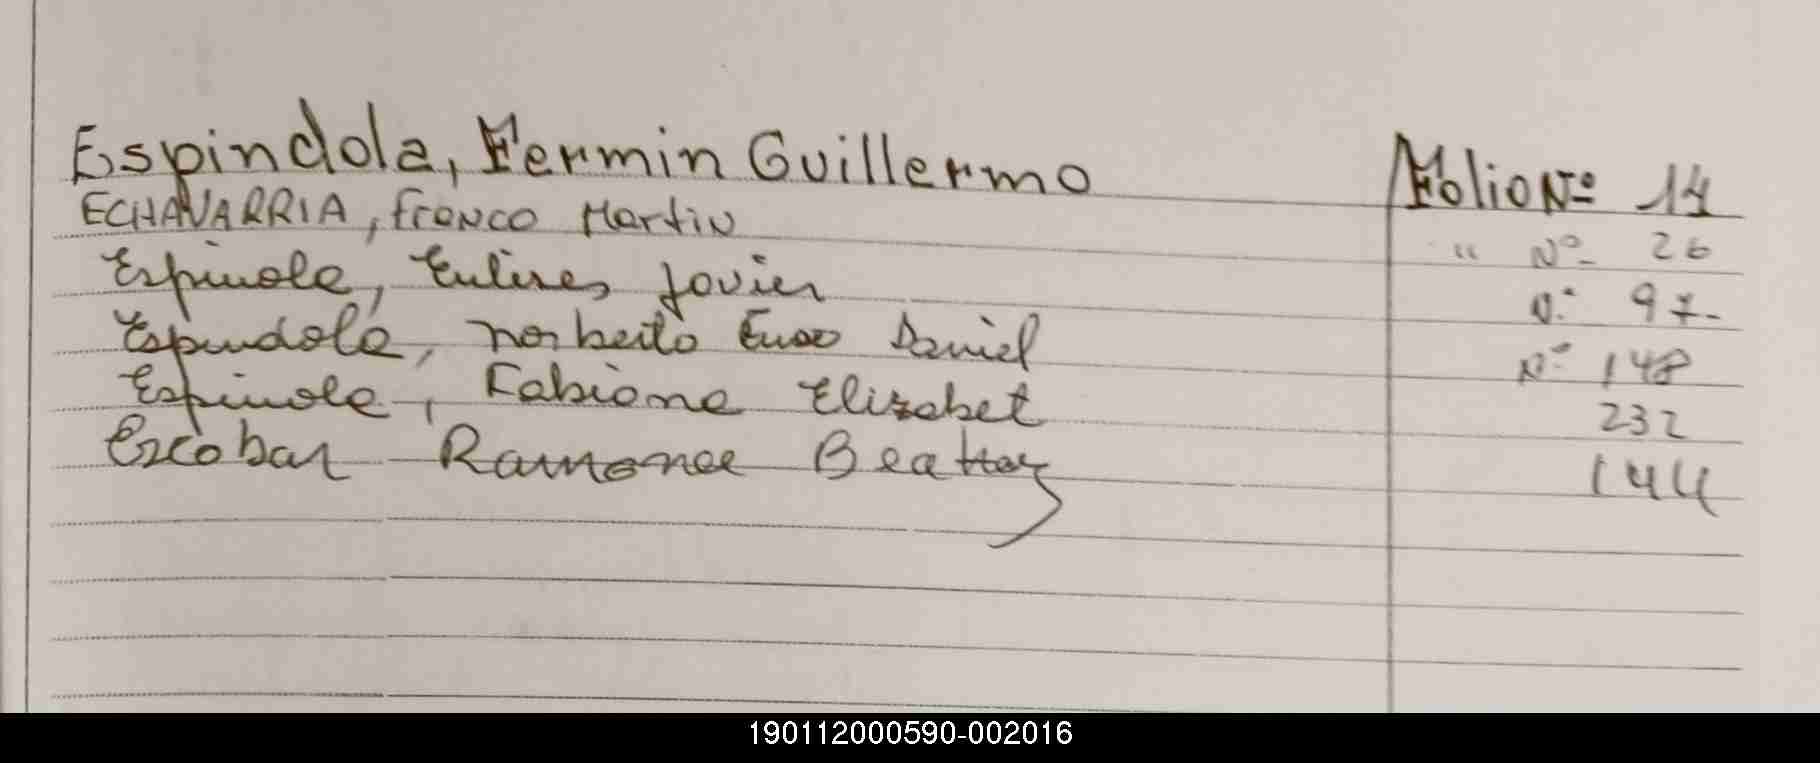 Espindola, Fermin Guillermo Folio Nº 14
ECHAVARRIA, Franco Martin " Nº 26
Espinola, Javier Nº 97-
Espindola, Norberto Daniel Nº 148
Espinola, Fabiana Elizabet 232
Escobar Ramona Beatriz 144
190112000590-002016